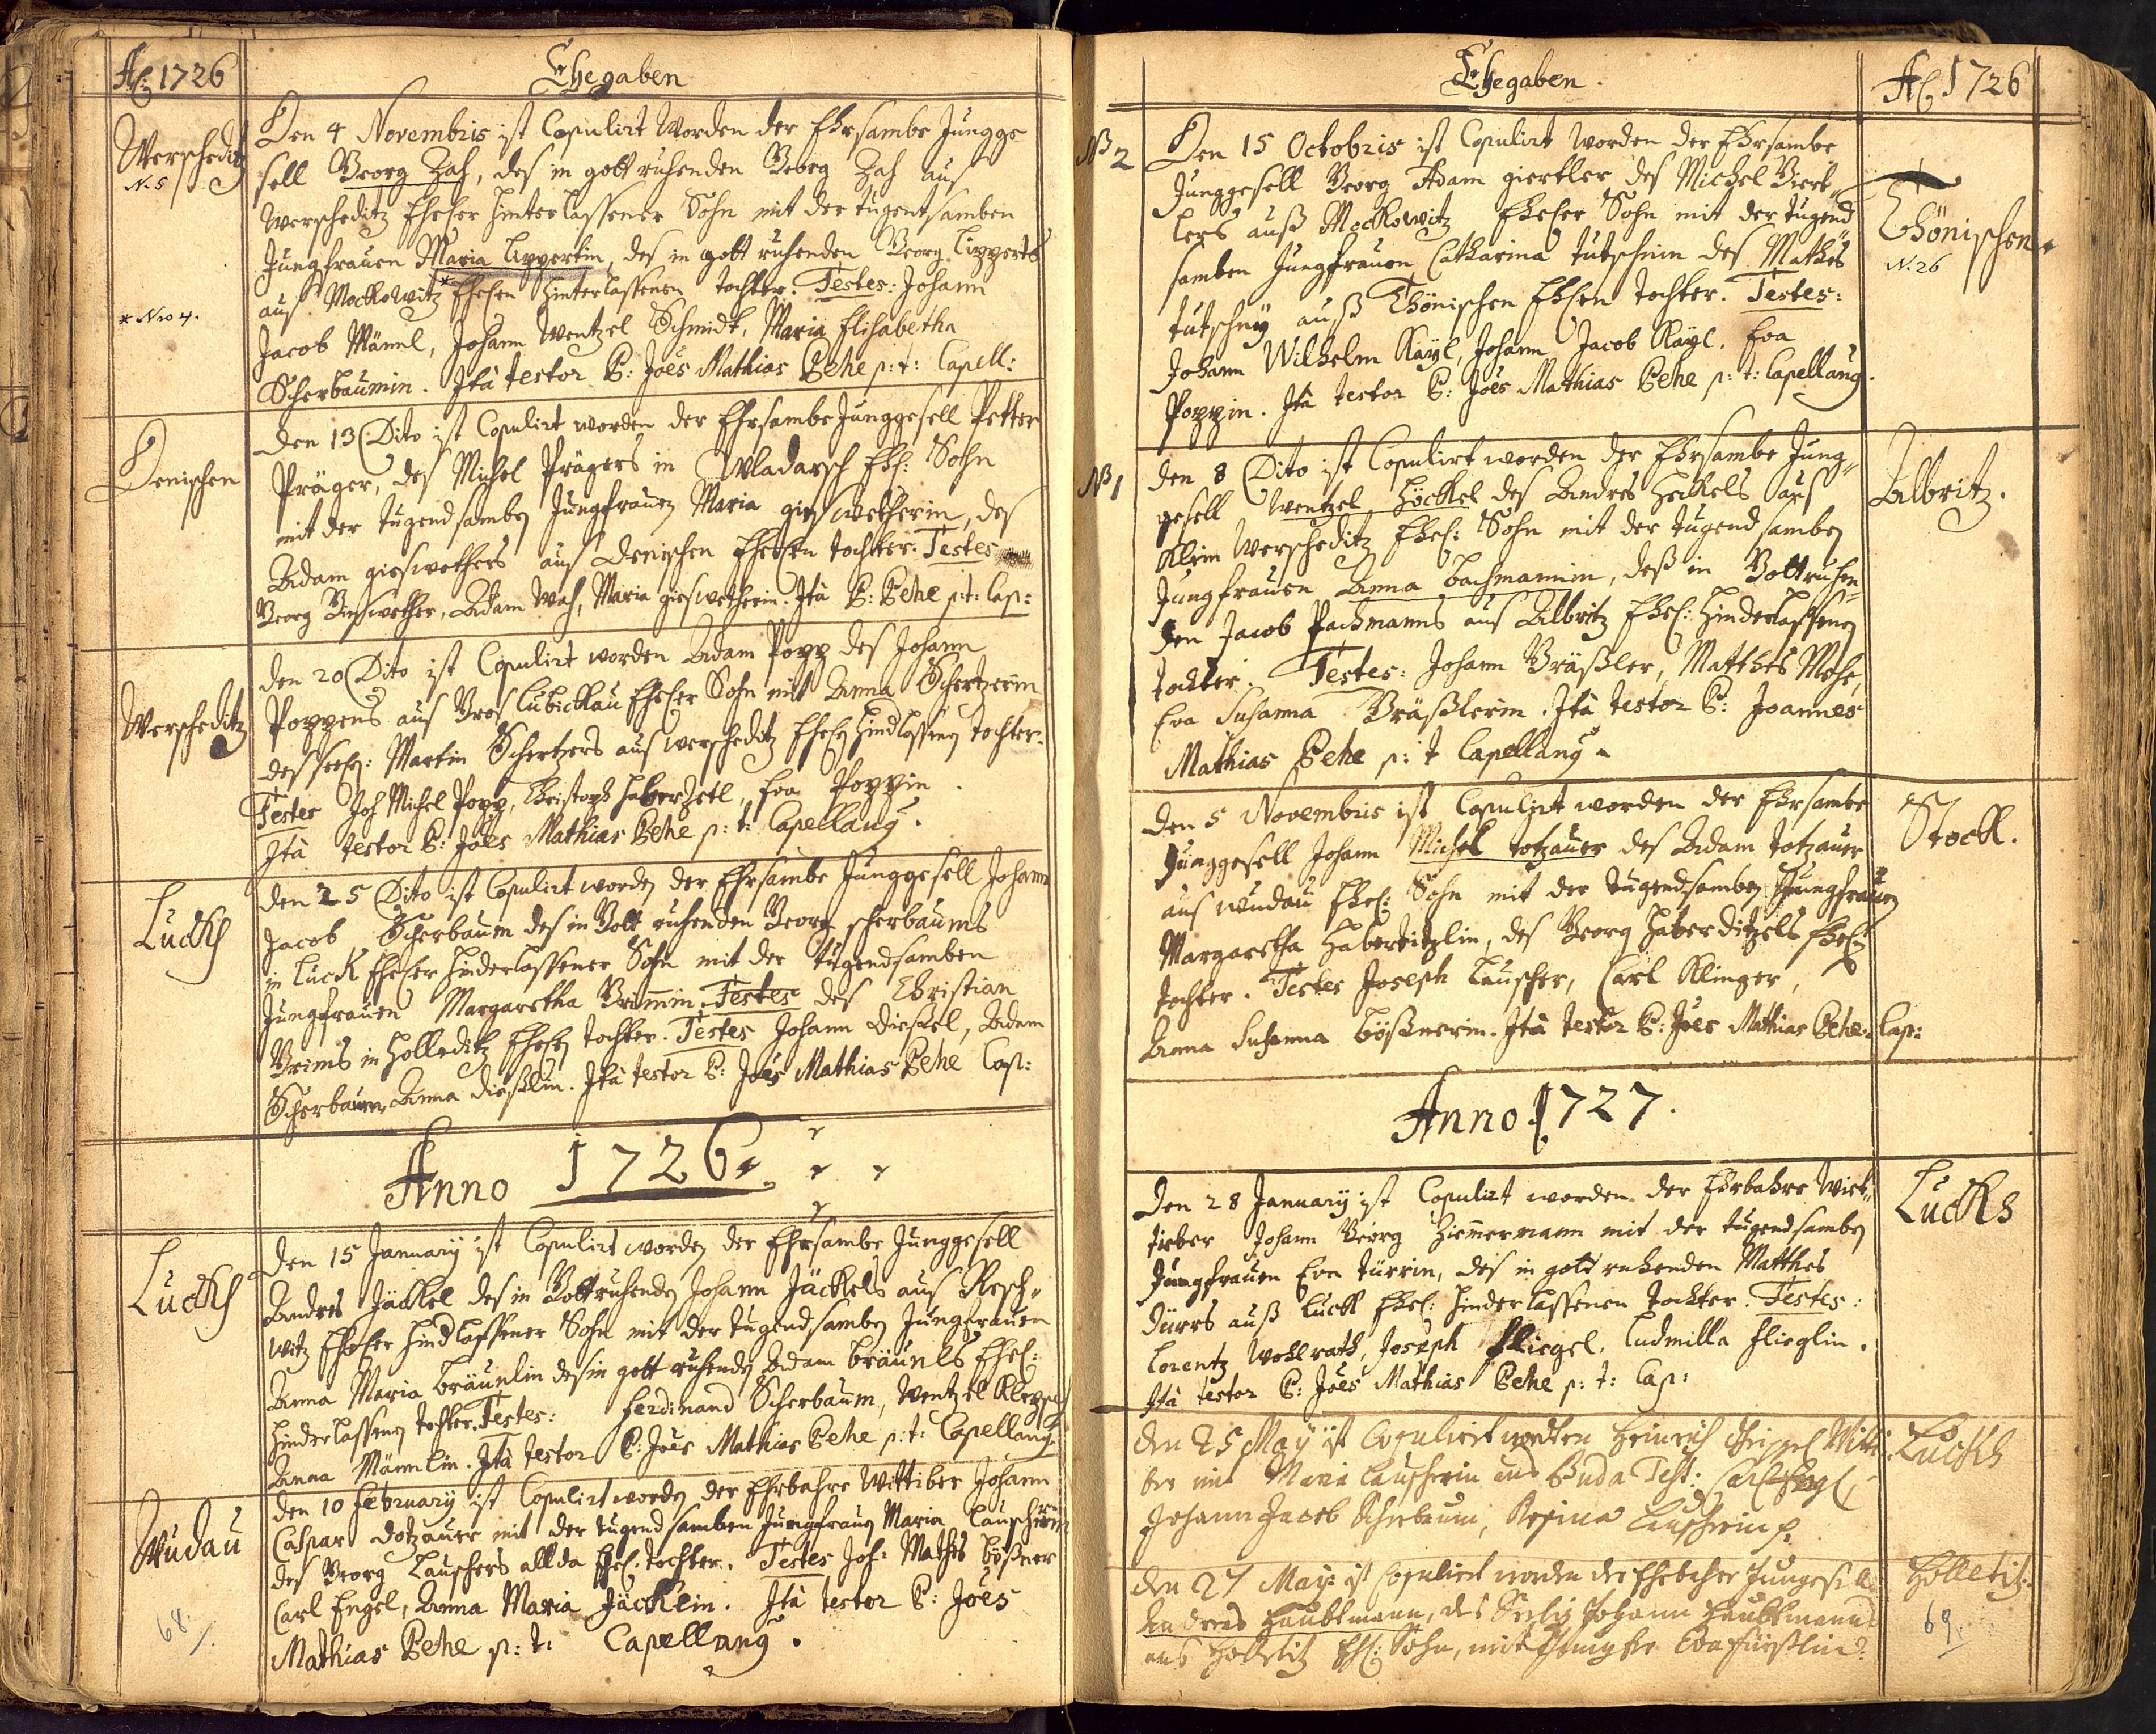 Aō 1726
Ehegaben
Werscheditz
N. 5
Den 4 Novembris ist Copulirt Worden der Ehrsambe Jungge
sell Georg Zah, des in gott ruhenden Georg Zah aus
Werscheditz Ehel[ich]er hinterlassener Sohn mit der tugentsamben
Jungfrauen Maria Lippertin, des in gott ruhenden Georg Lipperts
aus Mockowitz * Ehel[ich]en hinterlassenen tochter. Testes: Johann
* Nro 4.
Jacob Männl, Johann Wentzel Schmidt, Maria Elisabetha
Scherbaumin. Ità testor P: Joês Mathias Behe p: t: Capell:
Denischen
Den 13 Dito ist Copulirt worden der Ehrsambe Junggesell Petter
Präger, des Michel Prägers in Wladarsch Ehl: Sohn
mit der tugendsamben Jungfrauen Maria gieswetherin, des
Adam gieswethers aus Denischen Ehel[ich]en tochter. Testes
Georg Gieswether, Adam Wah, Maria gieswetherin. Ità P: Behe p: t: Cap:
Werscheditz
Den 20 Dito ist Copulirt worden Adam Popp des Johann
Poppens aus Gros Lubickau Ehel[ich]er Sohn mit Anna Schertzerin
des seel: Martin Schertzers aus Werscheditz Ehel[ich]en hindlassenen tochter.
Testes Joh Michel Popp, Christoph Haberzetl, Eva Poppin.
Ità testor P: Joês Mathias Behe p: t: Capellang.
Lucks
Den 25 Dito ist Copulirt worden der Ehrsambe Junggesell Johann
Jacob Scherbaum des in Gott ruhenden Georg scherbaums
in Luck Ehel[ich]er hinderlassener Sohn mit der tugendsamben
Jungfrauen Margaretha Grim̄in. Testes des Christian
Grims in Holleditz Ehel[ich]en tochter. Testes Johann Diessel, Adam
Scherbaum, Anna Diesslin. Ità testor P: Joês Mathias Behe Cap:
Anno 1726
Lucks
Den 15 January ist Copulirt worden der Ehrsambe Junggesell
Andres Jäckel des in Gott ruhenden Johann Jäckels aus Resch-
witz Ehel[ich]er hindlassener Sohn mit der tugendsamben Jungfrauen
Anna Maria Bräunlin des in gott ruhenden Adam Bräunls Ehel:
hinderlassenen tochter. Testes: Ferdinand Scherbaum, Wentzel Klepsch
Anna Männlin. Ità testor P: Joês Mathias Behe p: t: Capellang.
Wudau
Den 10 February ist Copulirt worden der Ehrbahre Wittiber Johann
Caspar Dotzauer mit der tugendsamben Jungfrauen Maria Lauscherin
des Georg Lauschers allda Ehel. tochter. Testes Joh: Mathes Bößner
Carl Engel, Anna Maria Jäcklin. Ità testor P: Joês
Mathias Behe p: t: Capellang.
68.
Ehegaben.
Aō 1726
N 2
Den 15 Octobris ist Copulirt worden der Ehrsambe
Junggesell Georg Adam giertler des Michel Giert-
lers auß Mockowitz Ehel[ich]er Sohn mit der tugend
samben Jungfrauen Catharina tutschnin des Mathes
tutschny auß Thönischen Ehl[ich]en tochter. Testes:
Johann Wilhelm Kayl, Johann Jacob Kayl, Eva
Poppin. Ità testor P: Joês Mathias Behe p: t: Capellang.
Thönischen
N. 26
N 1
Den 8 Dito ist Copulirt worden der Ehrsambe Jung-
gesell Wentzel Höckel des Andres Heckels aus
Klein Werscheditz Ehel: Sohn mit der tugend samben
Jungfrauen Anna Bachmanin, deß in Gott ruhen-
den Jacob Pachmanns aus Albritz Ehel: hinderlassenen
tochter. Testes: Johann Gräßler, Matthes Mehe,
Eva Susanna Gräßlerin. Ità testor P: Joannes
Mathias Behe p: t Capellang
Albritz.
Den 5 Novembris ist Copulirt worden der Ehrsambe
Junggesell Johann Michel totzauer des Adam totzauer
aus Wudau Ehel: Sohn mit der tugendsamben Jungfrauen
Margaretha Habertitzlin, des Georg Haberditzels Ehel[ich]en
tochter. Testes Joseph Lauscher, Carl Klinger,
Anna Susanna Bößnerin. Ità testor P: Joês Mathias Behe: Cap:
Stockl.
Anno 1727.
Den 28 January ist Copulirt worden der Ehrbahre Wiet-
tieber Johann Georg Zimmermann mit der tugendsamben
Jungfrauen Eva Türrin, des in gott ruhenden Matthes
Dürrs auß Luckl Ehel: hinderlassenen tochter. Testes:
Lorentz Wohlrath, Joseph Fliegel, Ludmilla Flieglin.
Ità testor P: Joês Mathias Behe p: t: Cap:
Lucks
Den 25 May ist Copuliert worden Heinrich Witti-
ber mit Maria Lauscherin aus Buda Test: Carl Engl,
Johann Jacob Scherbaum, Regina Lauscherin
Lucks
Den 27 May ist Copuliert worden der Ehrbahre Junggesell
Andreas Haubtmann, des Seelig Johann Haubtmanns
aus Holletitz Ehl: Sohn, mit Jungfer Eva
Holletitz
69.